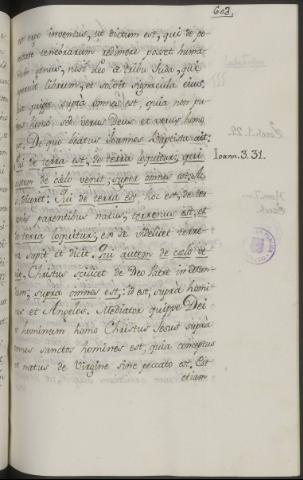 603.
inventus, ut dictum est, qui de po-
testate tenebrarum redimere posset huma-
genus, nisi Leo de tribu Juda, qui
aperuit librum, et solvit signacula ejus.
quippe supra omnes est, quia non pu-
rus homo, sed verus Deus et verus homo
De quo beatus Joannes Baptista ait:
Qui de terra est, de terra loquitur, qui
autem de cælo venit, super omnes est.
Qui de terra est hoc est, de ter-
parentibus natus, terrenus est, et
de terra loquitur, ea scilicet terre-
sapit et dicit. Qui autem de cælo ve-
nit, Christus scilicet de Deo Patre
supra omnes est; id est, supra homi-
nes et Angelos. Mediator quippe Dei
et hominum homo Christus Jesus supra
omnes sanctos homines est, quia conceptus
et natus de Virgine sine peccato est. Est
etiam
Joann. 3. 31.